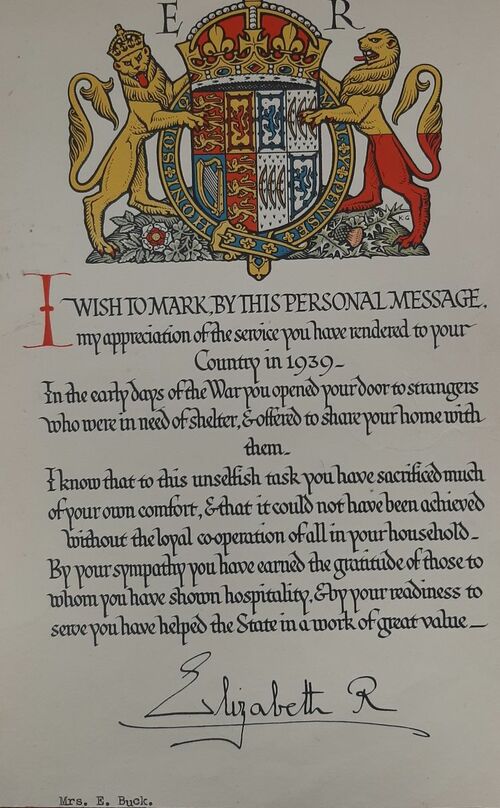 E R
HONI · SOI MAL · Y · PENSE
K G
I WISH TO MARK, BY THIS PERSONAL MESSAGE,
my appreciation of the service you have rendered to your
Country in 1939_
In the early days of the War you opened your door to strangers
who were in need of shelter, & offered to share your home with
them_
I know that to this unselfish task you have sacrificed much
of your own comfort, & that it could not have been achieved
without the loyal co-operation of all in your household_
By your sympathy you have earned the gratitude of those to
whom you have shown hospitality, & by your readiness to
serve you have helped the State in a work of great value_
Elizabeth R
Mrs. E. Buck.